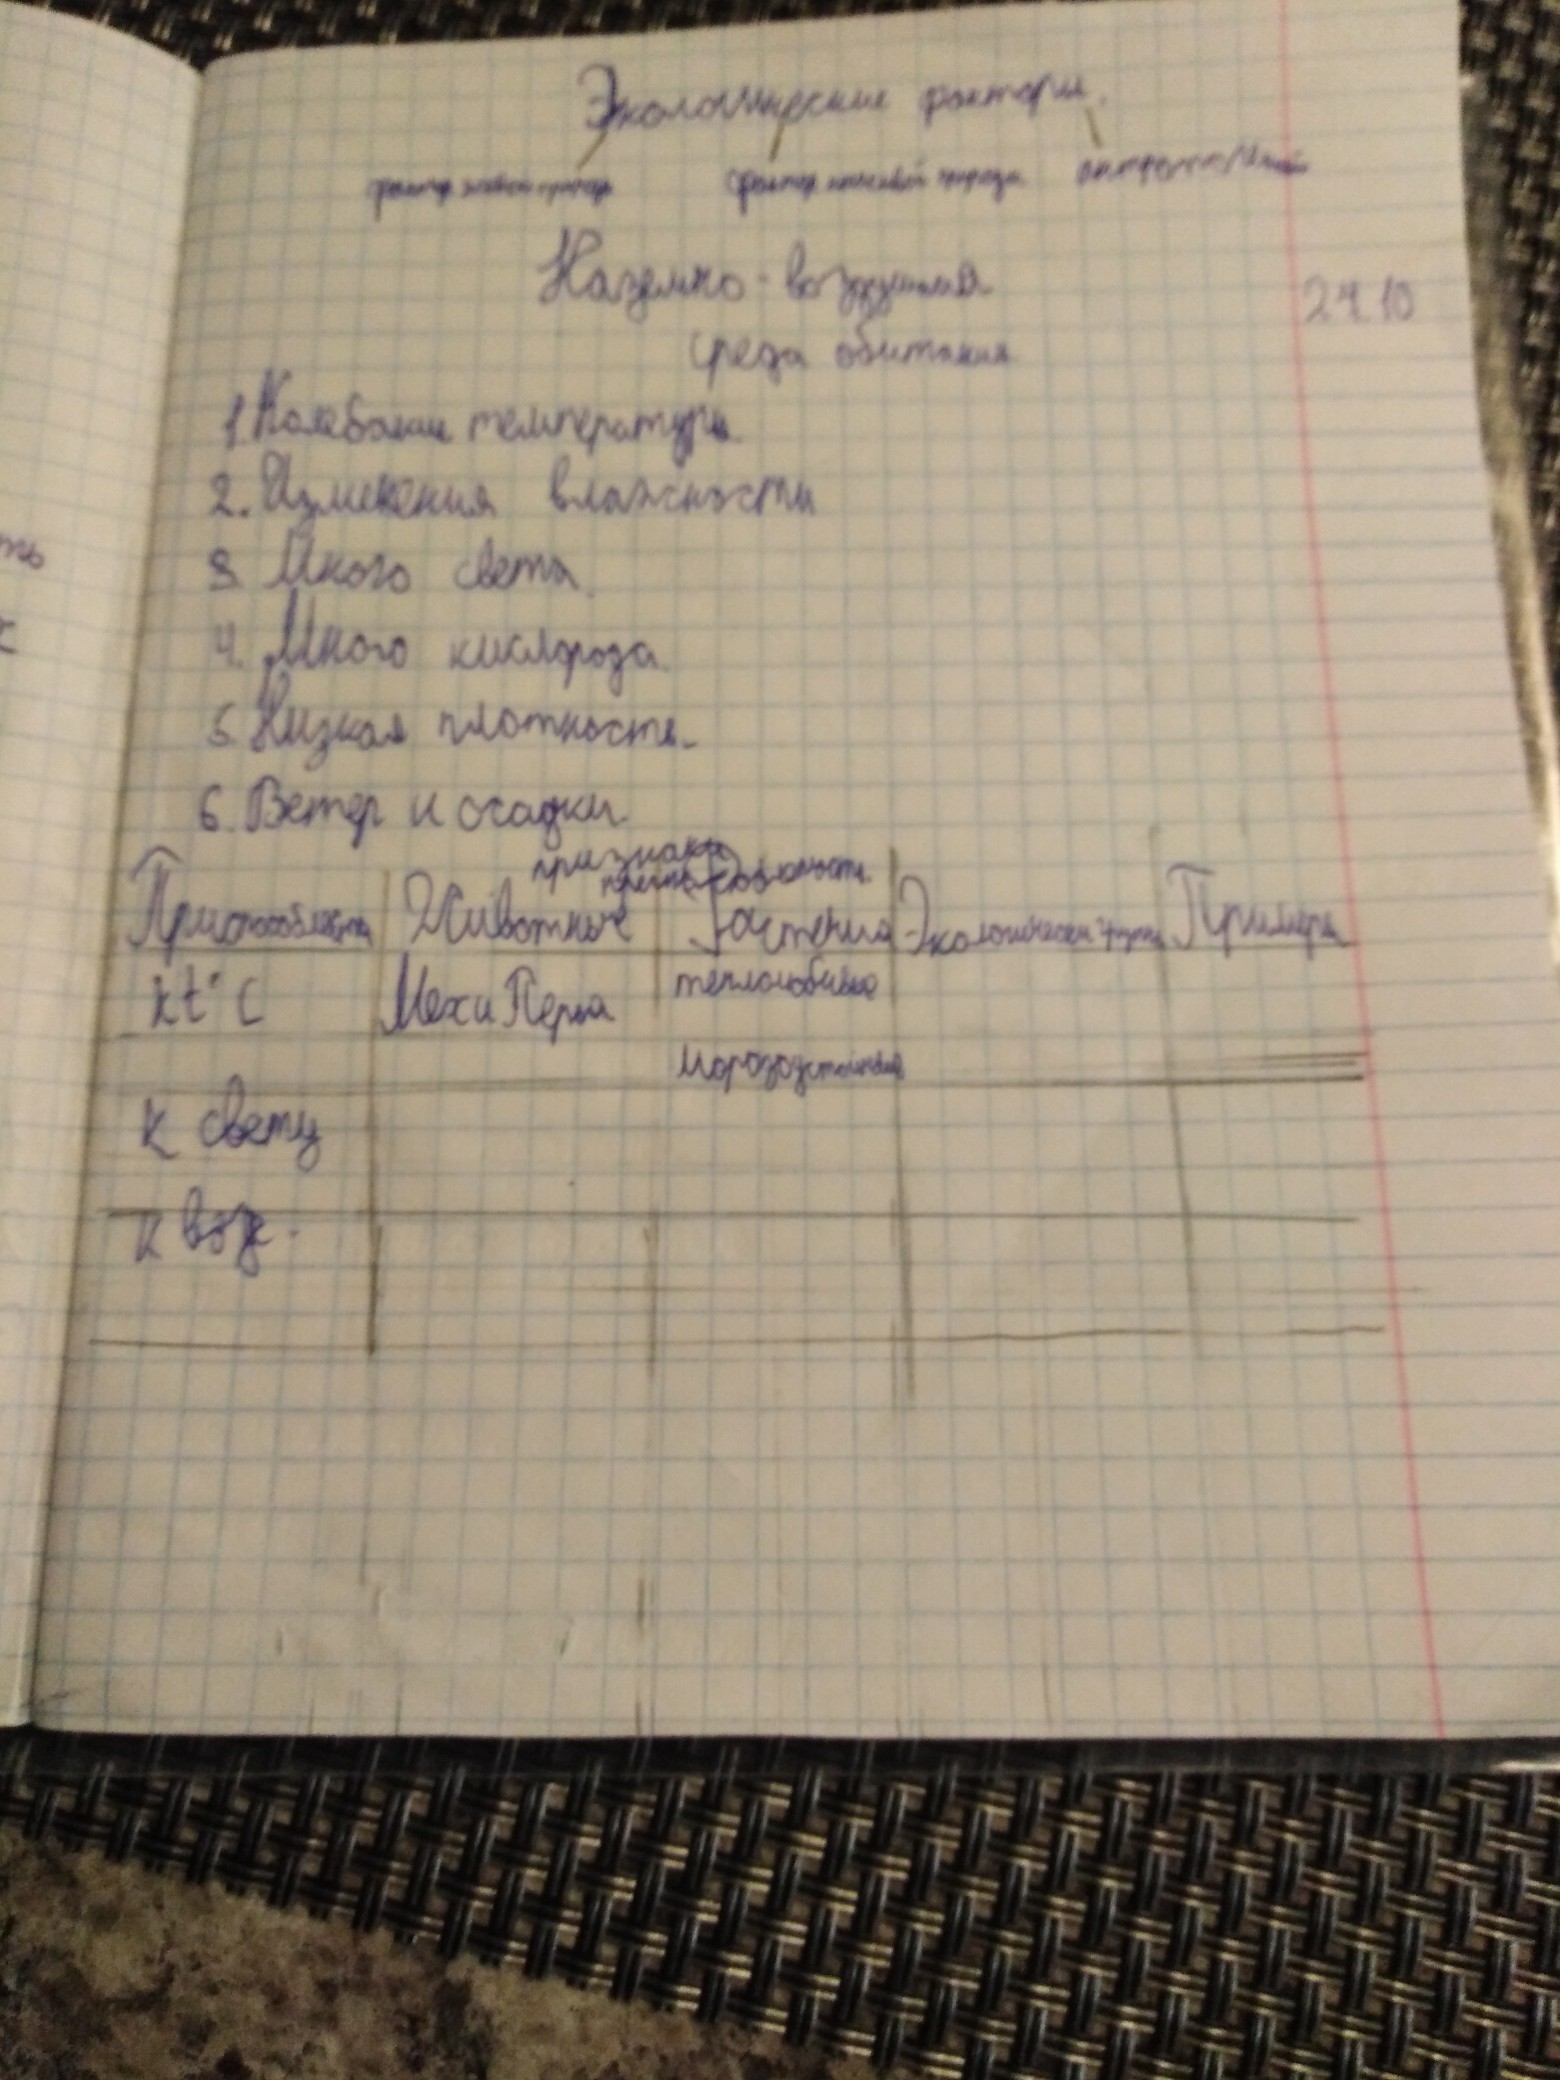 Экологические факторы.
фактор живой природ фактор неживой природы антропогенный
Наземно-воздушная 24.10
среда обитания
1. Колебании температуры.
2. Изменения влажности
3. Много света.
4. Много кислорода.
5. Низкая плотность.
6. Ветер и осадки.
признаки
Животные Растения Экологически групы Примеры
к t°C Мех и Перья теплолюбивые
морозоустойчивые
к свету
ть